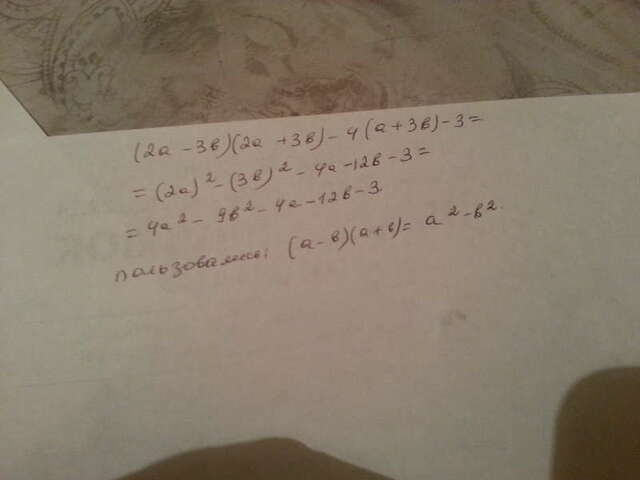 (2а - 3в)(2а + 3в) - 4(а + 3в) - 3 =
= (2а)² - (3в)² - 4а - 12в - 3 =
= 4а² - 9в² - 4а - 12в - 3.
пользовались: (а - в)(а + в) = а² - в².